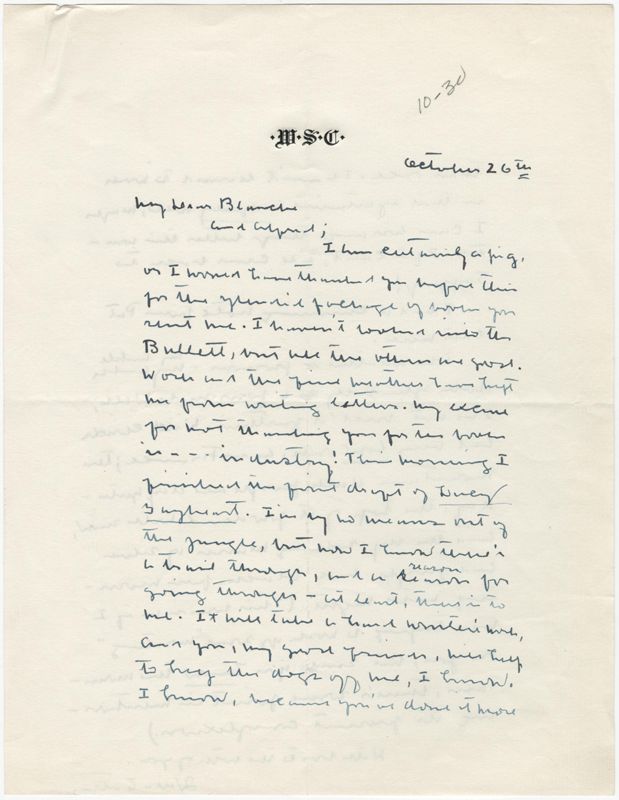 10-30
·W·S·C·
October 26th
My Dear Blanche
and Alfred;
I am certainly a pig,
or I would have thanked you before this
for the splendid package of books you
sent me. I haven't looked into the
Bullett, but all the others are good.
Work and the fine weather have kept
me from writing letters. My excuse
for not thanking you for the books
is - - - industry! This morning I
finished the first draft of Lucy
Gayheart. I'm by no means out of
the jungle, but now I know there's
a trail through, and a reason for
going through - at least, there is to
me. It will take a hard winter's work,
and you, my good friends, will help
to keep the dogs off me, I know.
I know, because you've done it more